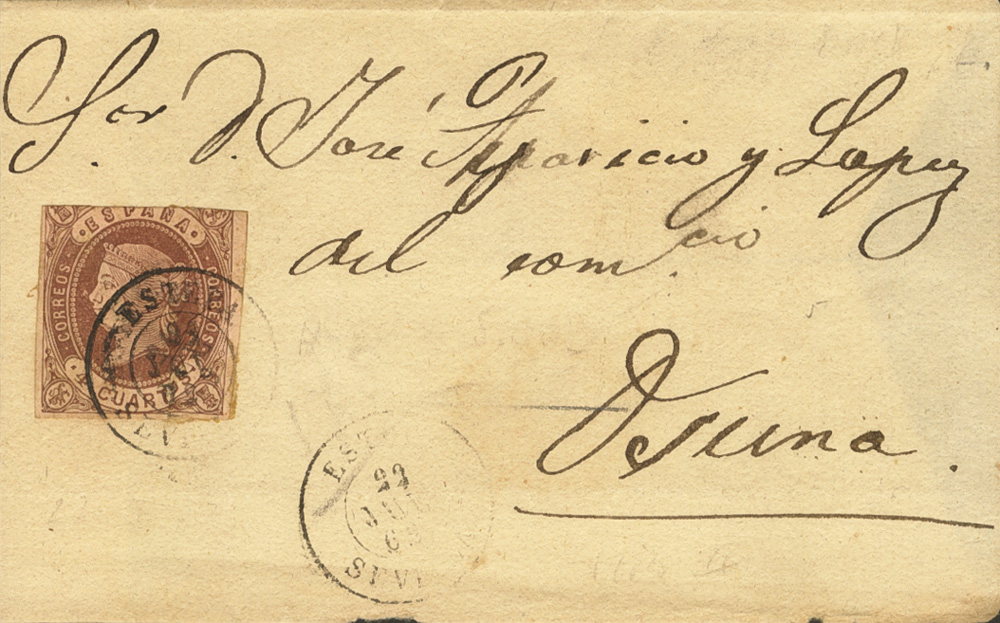 Sor. D. José Aparicio y Lopez
del comcio.
Osuna.
ESPAÑA
CORREOS
CORREOS
4 CUARTOS
ESTE
SEVI
22
EST
SEVI